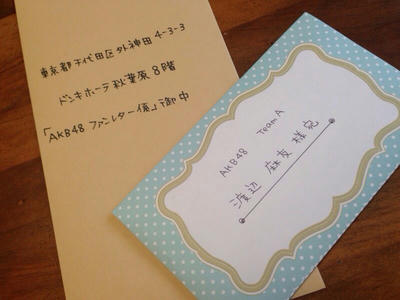 東京都千代田区外神田4-3-3
ドンキホーテ秋葉原8階
「AKB48ファンレター係」御中
AKB48 Team A
渡辺 麻友様宛